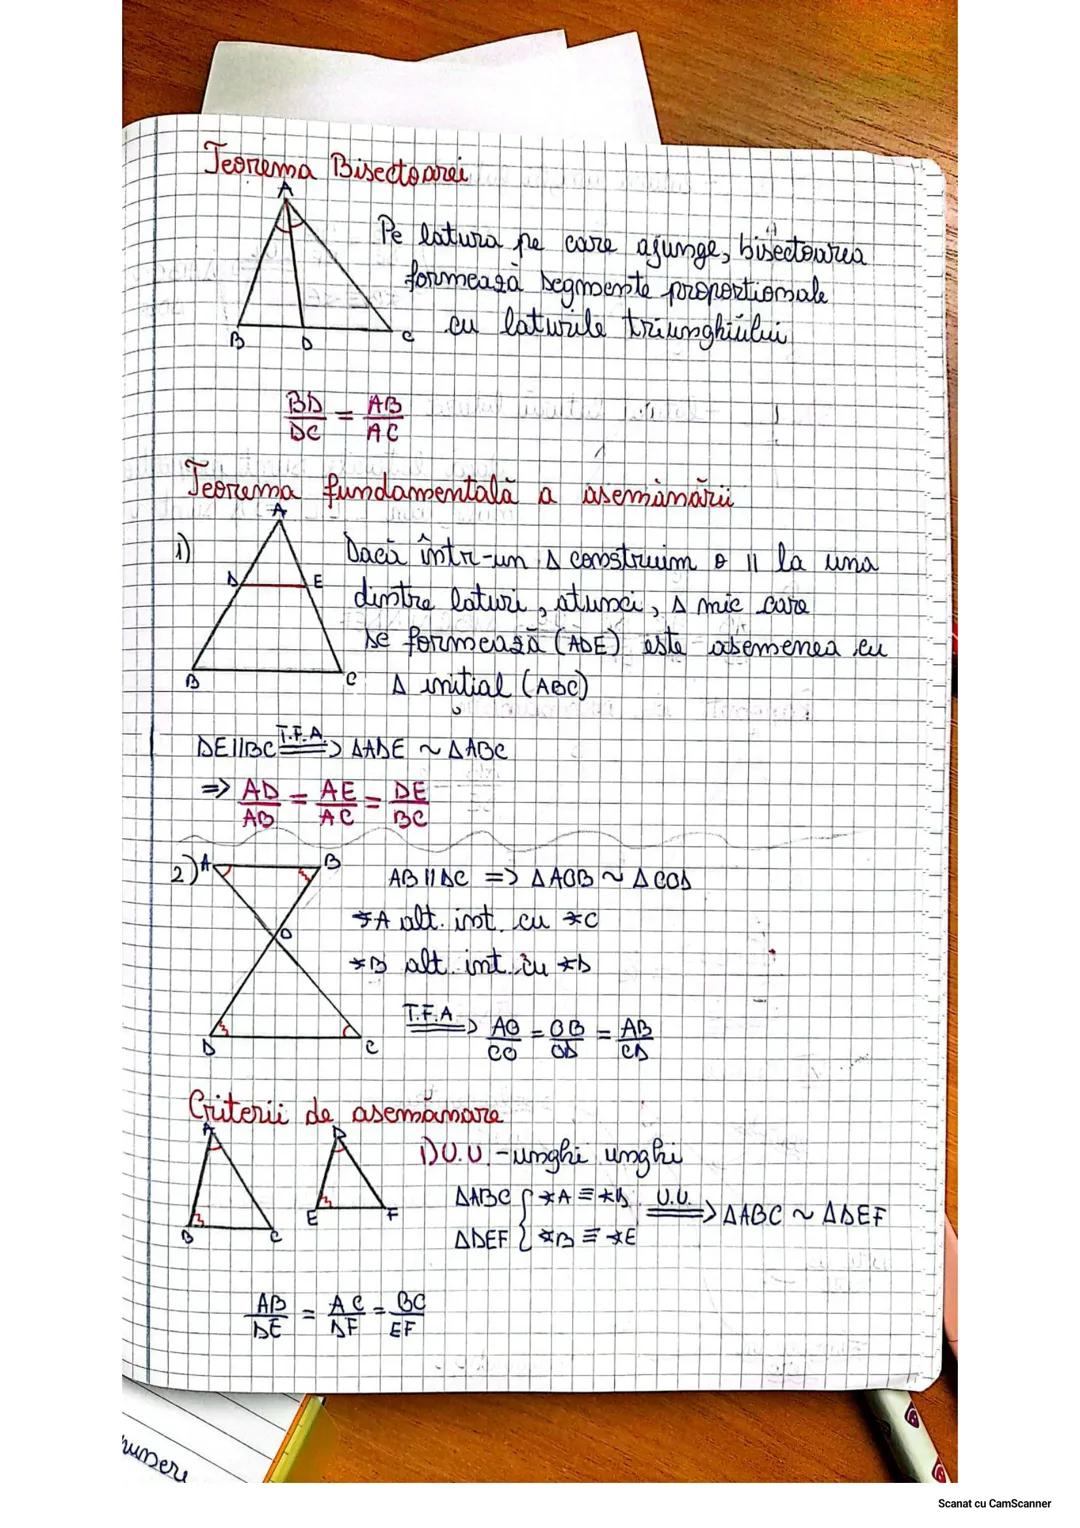 Teorema Bisectoarei
A
Pe latura pe care ajunge, bisectoarea
formează segmente proporționale
cu laturile triunghiului
B D C
BD/DC = AB/AC
Teorema fundamentală a asemănării
A
1) Dacă într-un Δ construim o || la una
D E dintre laturi, atunci, Δ mic care
se formează (ADE) este asemenea cu
B C Δ inițial (ABC)
DE||BC T.F.A. => ΔADE ~ ΔABC
=> AD/AB = AE/AC = DE/BC
2) A B AB || DC => ΔAOB ~ ΔCOD
∢A alt. int. cu ∢C
O
∢B alt. int. cu ∢D
T.F.A => AO/CO = OB/OD = AB/CD
D C
Criterii de asemănare
A D
1) U.U. - unghi unghi
ΔABC { ∢A ≡ ∢D U.U. => ΔABC ~ ΔDEF
E F
ΔDEF { ∢B ≡ ∢E
B C
AB/DE = AC/DF = BC/EF
Scanat cu CamScanner